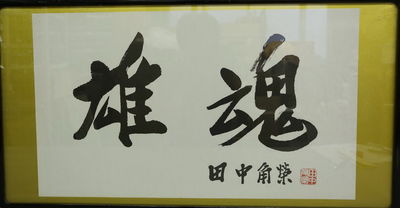 雄魂
田中角榮